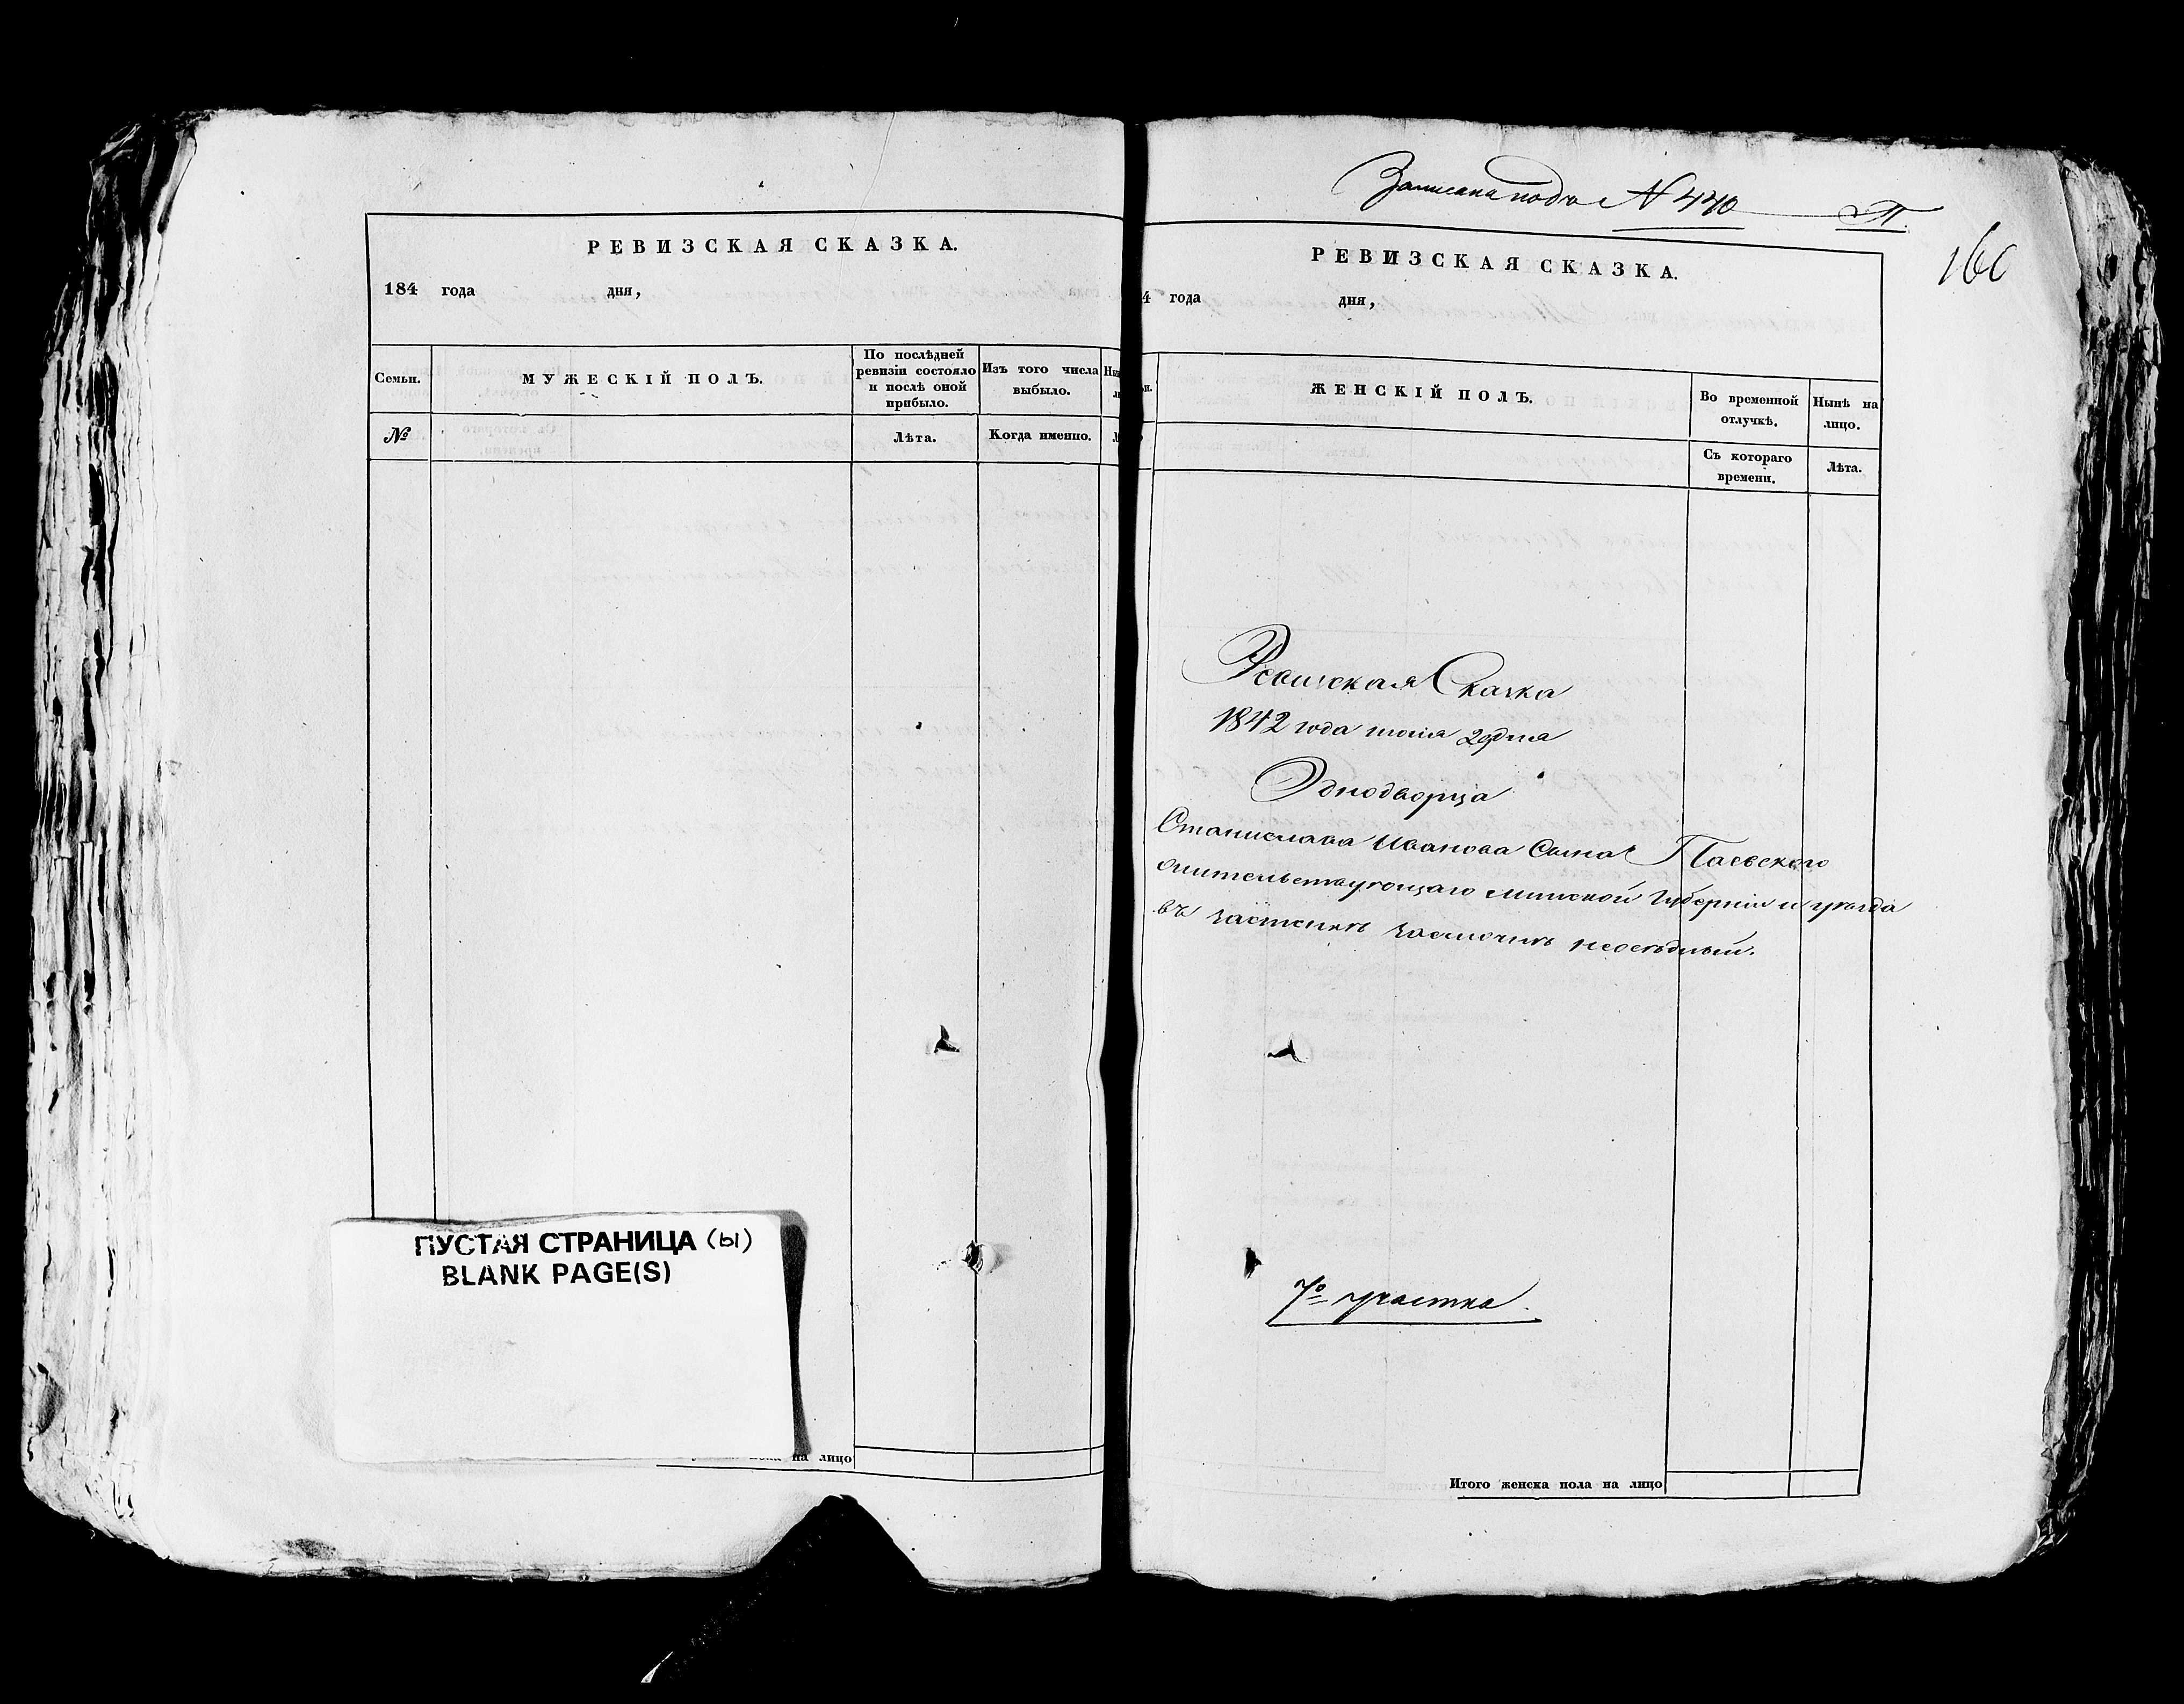 РЕВИЗСКАЯ СКАЗКА.
184 года дня,
Семьи.
МУЖЕСКІЙ ПОЛЪ.
По послѣдней
ревизіи состояло
и послѣ оной
прибыло.
Изъ того числа
выбыло.
№
Лѣта.
Когда именно.
ПУСТАЯ СТРАНИЦА (ы)
BLANK PAGE(S)
на лицо
Записана подъ № 440 П
160
РЕВИЗСКАЯ СКАЗКА.
4 года дня,
ЖЕНСКІЙ ПОЛЪ.
Во временной
отлучкѣ.
Нынѣ на
лицо.
Съ котораго
времени.
Лѣта.
Ревизская Сказка
1842 года дня
Однодворца
Станислава Иванова Сына Паевского
жительствующаго Минской Губерніи и уѣзда
въ неосѣдлый.
7го участка.
Итого женска пола на лицо